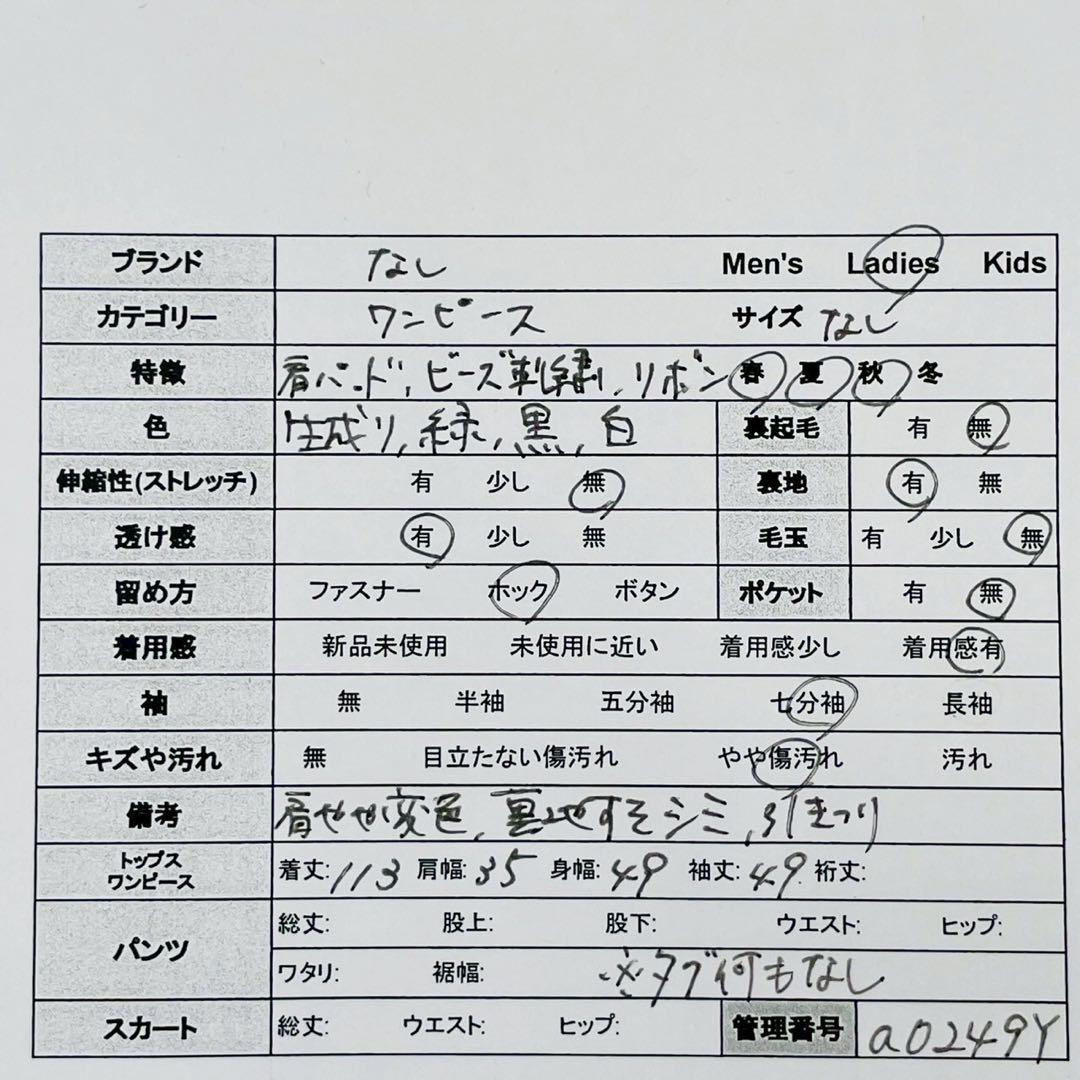 ブランド なし Men's Ladies Kids
カテゴリー ワンピース サイズ なし
特徴 肩パッド, ビーズ刺繍, リボン 春 夏 秋 冬
色 生成り, 緑, 黒, 白 裏起毛 有 無
伸縮性(ストレッチ) 有 少し 無 裏地 有 無
透け感 有 少し 無 毛玉 有 少し 無
留め方 ファスナー ホック ボタン ポケット 有 無
着用感 新品未使用 未使用に近い 着用感少し 着用感有
袖 無 半袖 五分袖 七分袖 長袖
キズや汚れ 無 目立たない傷汚れ やや傷汚れ 汚れ
備考 肩やや変色, 裏地すそシミ, 引きつり
トップス
ワンピース 着丈: 113 肩幅: 35 身幅: 49 袖丈: 49. 裄丈:
パンツ 総丈: 股上: 股下: ウエスト: ヒップ:
ワタリ: 裾幅: ※タグ何もなし
スカート 総丈: ウエスト: ヒップ: 管理番号 a0249Y